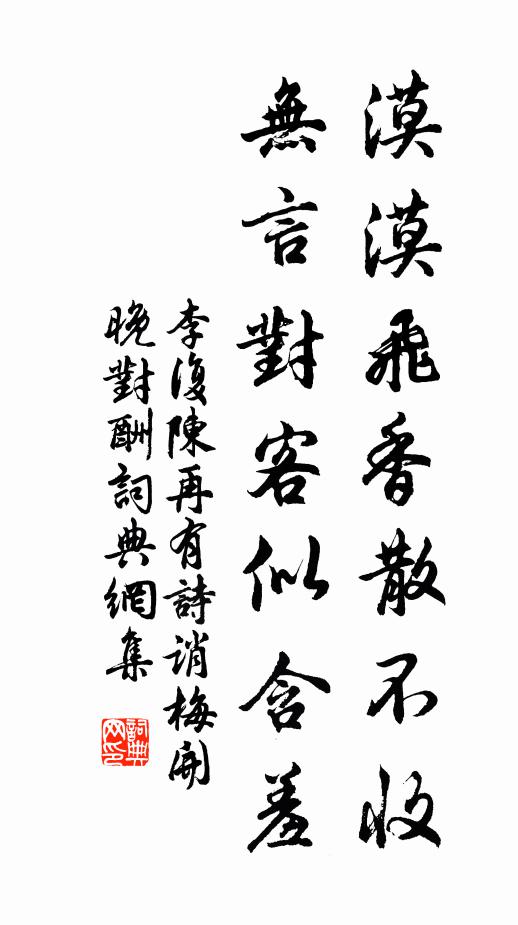 漠漠飛香散不收
無言對客似含羞
李復陳再有詩誚梅開
晚對酬詞典網集
詞典網印